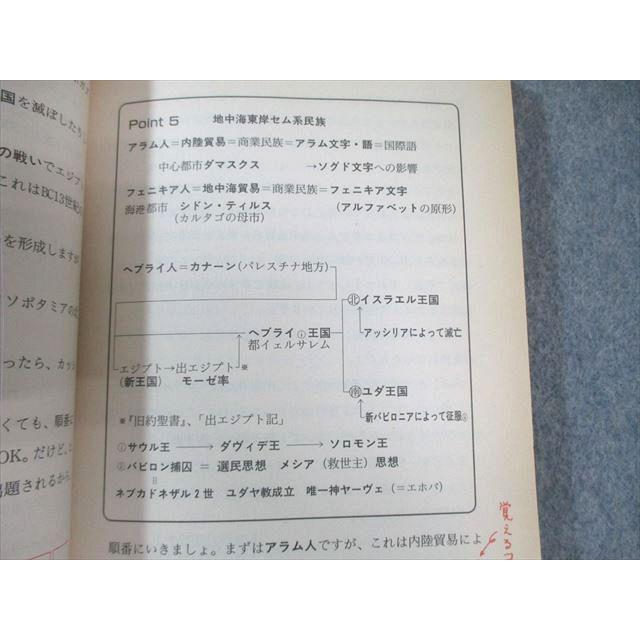 国を滅ぼしたり
の戦いでエジプ
これはBC13世紀
を形成しますが
ソポタミアの
ったら、カッ
くても、順番に
OK。だけど、
出題されるから、
Point 5 地中海東岸セム系民族
アラム人＝内陸貿易＝商業民族＝アラム文字・語＝国際語
中心都市ダマスクス →ソグド文字への影響
フェニキア人＝地中海貿易＝商業民族＝フェニキア文字
海港都市 シドン・ティルス (アルファベットの原形)
(カルタゴの母市)
ヘブライ人＝カナーン(パレスチナ地方)
北イスラエル王国
ヘブライ①王国
アッシリアによって滅亡
都イェルサレム
エジプト→出エジプト※
(新王国) モーゼ率
南ユダ王国
新バビロニアによって征服②
※『旧約聖書』、「出エジプト記」
①サウル王 → ダヴィデ王 → ソロモン王
②バビロン捕囚 ＝ 選民思想 メシア（救世主）思想
＝
ネブカドネザル2世 ユダヤ教成立 唯一神ヤーヴェ (＝エホバ)
順番にいきましょ。まずはアラム人ですが、これは内陸貿易によ
覚えるコ